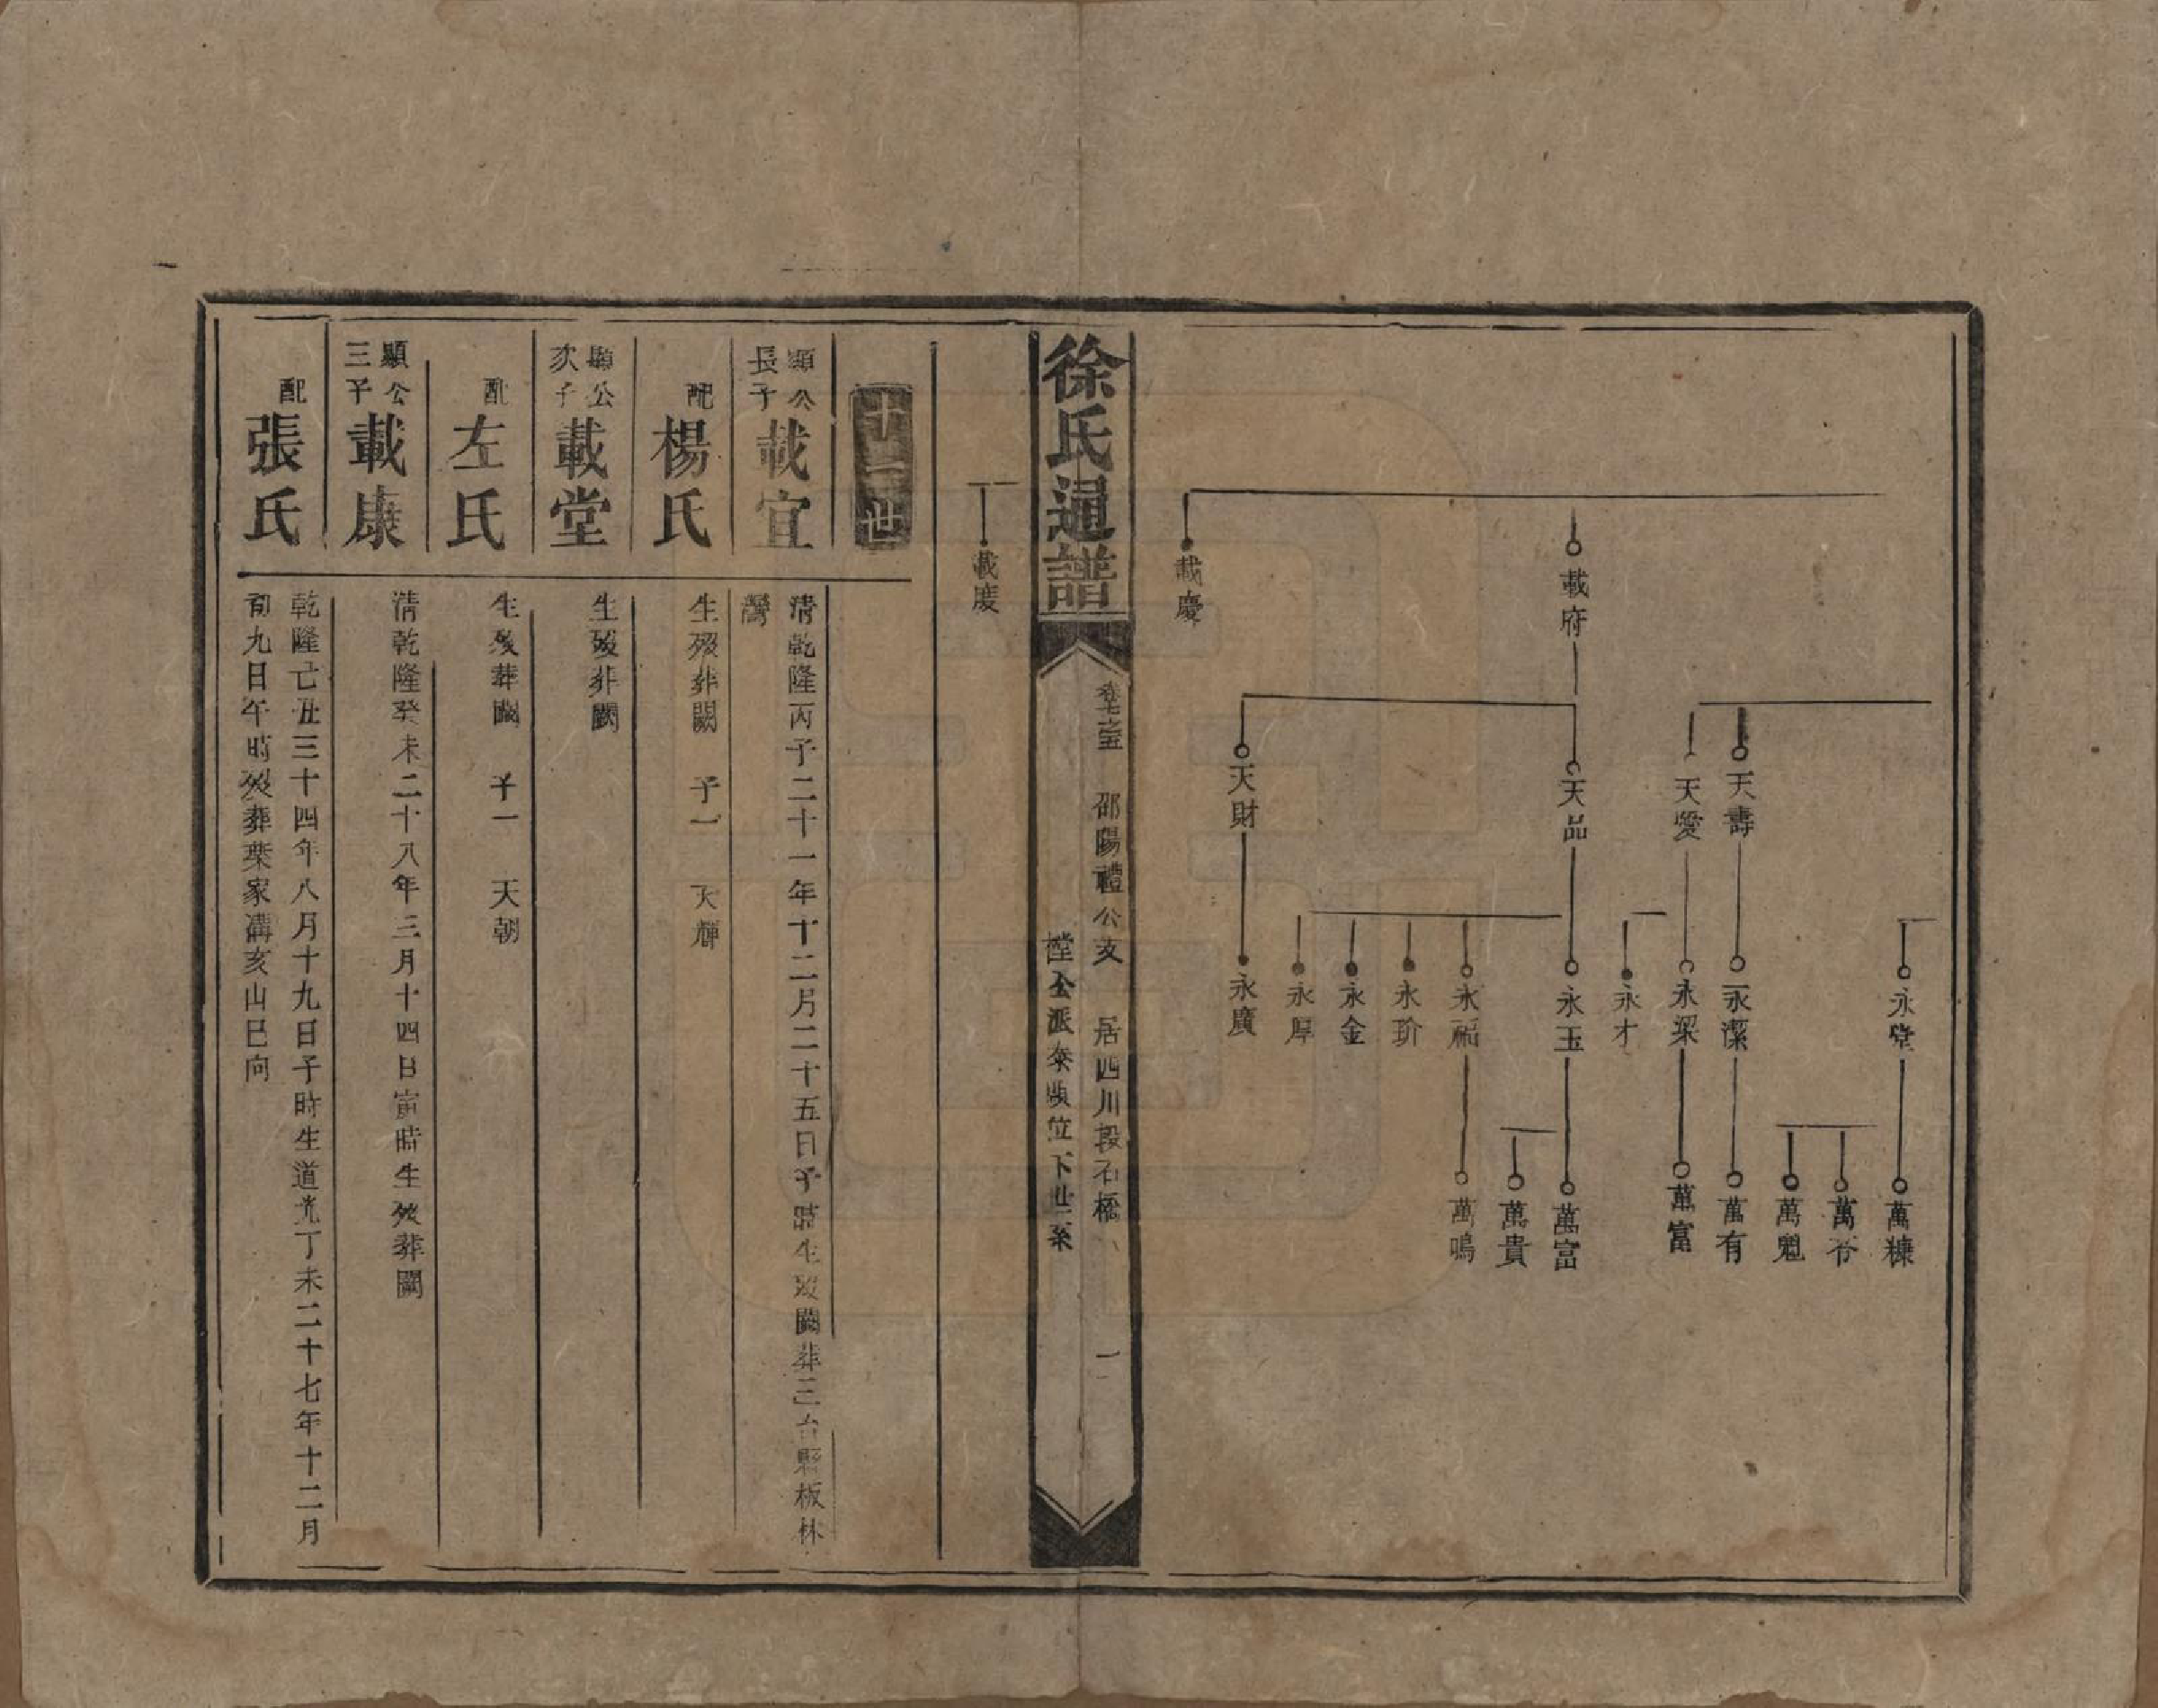 載府
載慶
天壽
天愛
天品
天財
永堂
永潔
永梁
永才
永玉
永福
永玠
永金
永厚
永廣
萬糠
萬苓
萬魁
萬有
萬富
萬富
萬貴
萬鳴
徐氏通譜
卷七之五 邵陽禮公支 居四川段石橋 一
樘公派泰順位下世系
載慶
十二世
顯公長子 載宜
清乾隆丙子二十一年十二月二十五日子時生歿闕葬三台縣板林
灣
配 楊氏
生歿葬闕 子一 天輝
顯公次子 載堂
生歿葬闕
配 左氏
生歿葬闕 子一 天朝
顯公三子 載康
清乾隆癸未二十八年三月十四日寅時生歿葬闕
配 張氏
乾隆己丑三十四年八月十九日子時生道光丁未二十七年十二月
初九日午時歿葬葉家溝亥山巳向